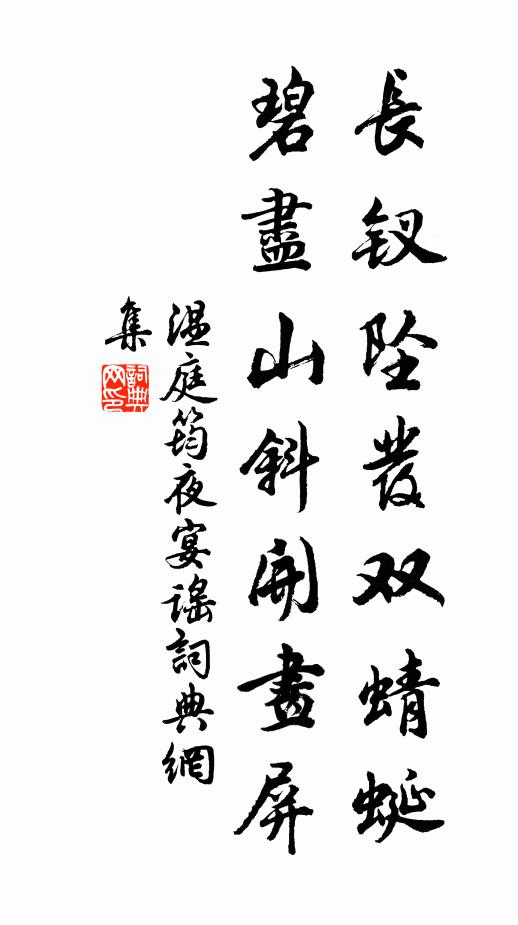 長釵坠發双蜻蜒
碧盡山斜開畫屏
温庭筠夜宴謡詞典網
集
詞典
网印